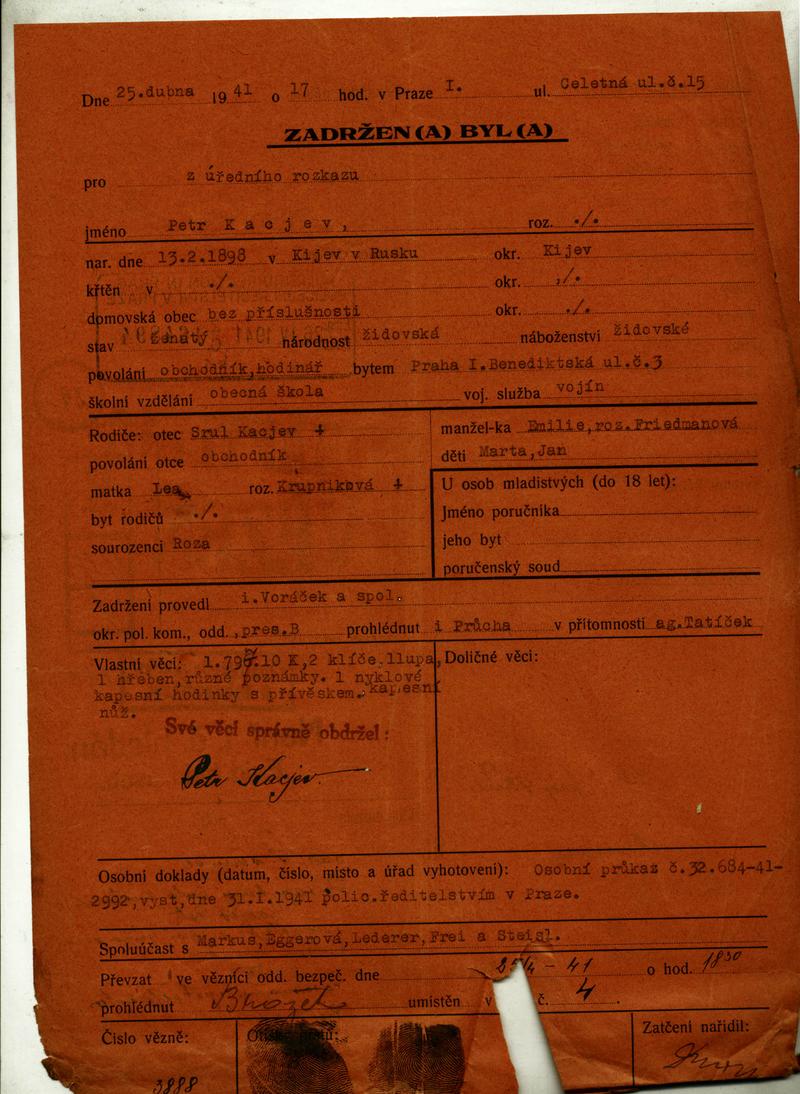 Dne 25.dubna 1941 o 17 hod. v Praze I. ul. Celetná ul.č.15
ZADRŽEN(A) BYL(A)
pro z úředního rozkazu
jméno Petr Kacjev, roz. ./.
nar. dne 13.2.1898 v Kijev v Rusku okr. Kijev
křtěn v ./. okr. ./.
domovská obec bez příslušnosti okr. ./.
stav ženatý národnost židovská náboženství židovské
povolání obchodník,hodinář bytem Praha I.Benediktská ul.č.3
školní vzdělání obecná škola voj. služba vojín
Rodiče: otec Srul Kacjev +
povolání otce obchodník
matka Lea roz. Krupniková +
byt rodičů ./.
sourozenci Roza
manžel-ka Emilie,roz.Friedmanová
děti Marta,Jan
U osob mladistvých (do 18 let):
Jméno poručníka
jeho byt
poručenský soud
Zadržení provedl i.Voráček a spol.
okr. pol. kom., odd. ,pres.B prohlédnut i Průcha v přítomnosti ag.Tatíček
Vlastní věci: 1.796.10 K,2 klíče,1lupa,
1 hřeben,různé poznámky. 1 nyklové
kapesní hodinky s přívěskem.kapesní
nůž.
Své věci správně obdržel:
Petr Kacjev
Doličné věci:
Osobní doklady (datum, číslo, místo a úřad vyhotovení): Osobní průkaz č.32.684-41-
2992,vyst,dne 31.I.1941 polic.ředitelstvím v Praze.
Spoluúčast s Markus,Eggerová,Lederer,Frei a Steisl.
Převzat ve věznici odd. bezpeč. dne 25/4 - 41 o hod. 1830
prohlédnut umístěn v č. 4.
Číslo vězně:
3888
Otisky prstů:
Zatčení nařídil: